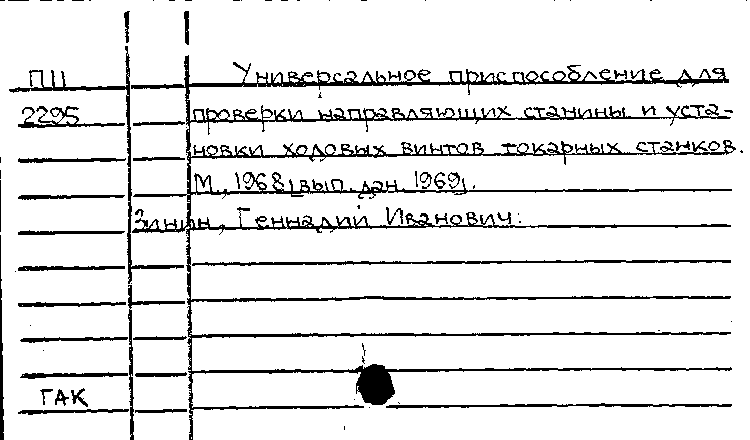 П11 Универсальное приспособление для
2295 проверки направляющих станины и уста-
новки ходовых винтов токарных станков.
М., 1968[вып. дан. 1969].
Зинин, Геннадий Иванович.
ГАК